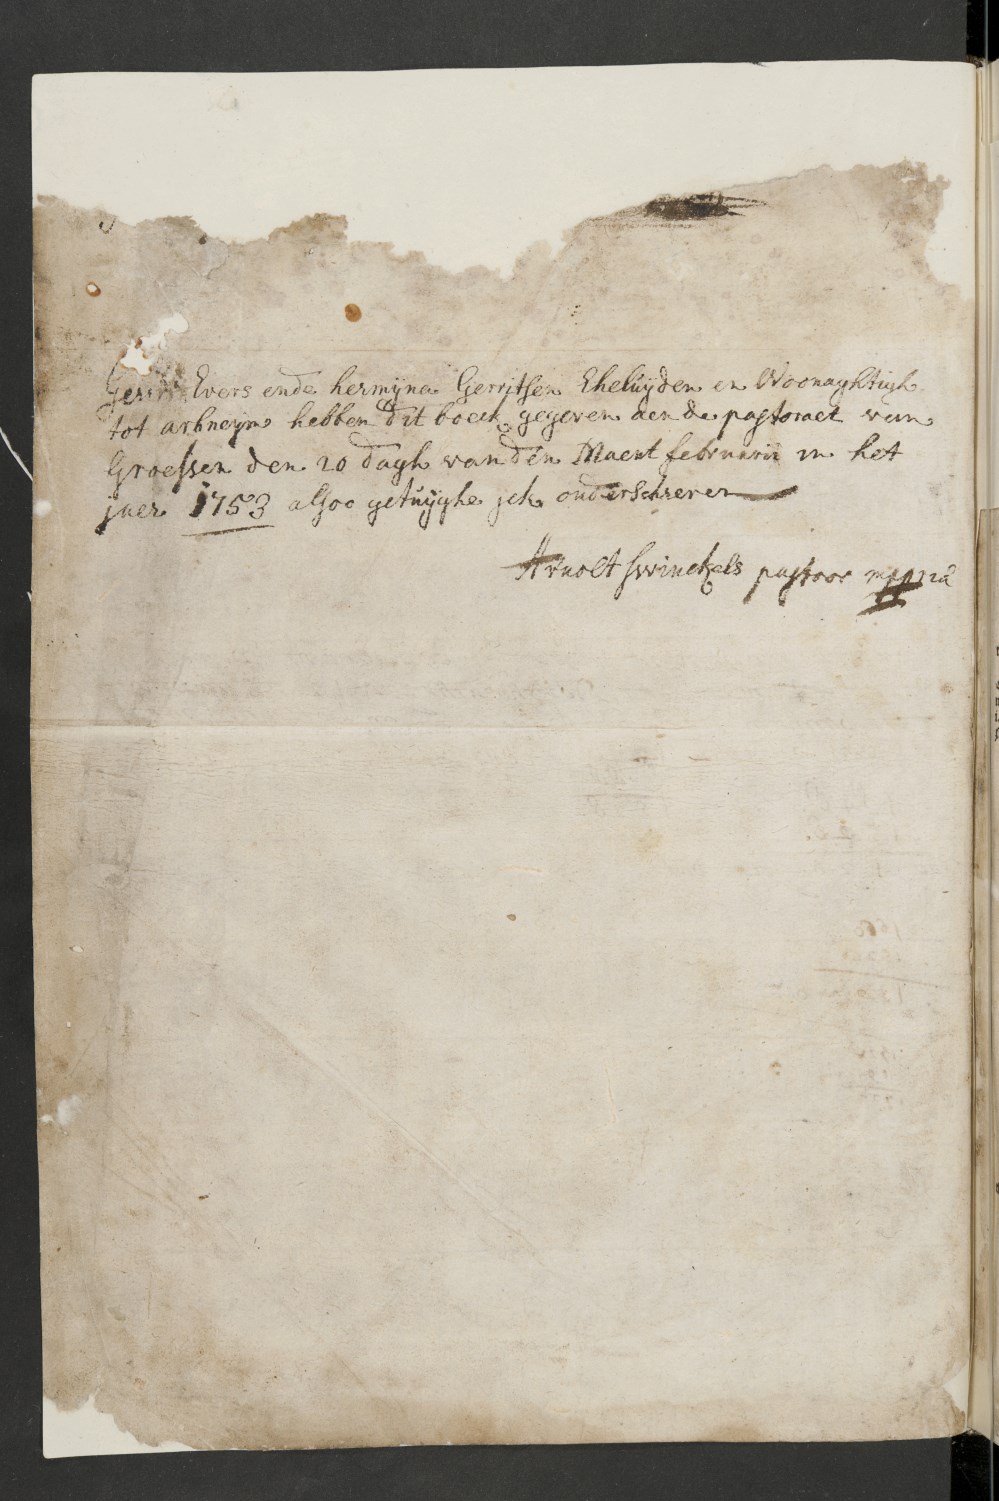 Gerrit Evers ende hermijna Gerritsen Eheluijden en Woonaghtigh
tot arhneijm hebben dit boeck gegeven aen de pastoraet van
Groessen den 20 dagh van den Maent februarii in het
jaer 1753 alsoo getuijghe jck onderschreven
Arnolt Swinckels pastoor mppria